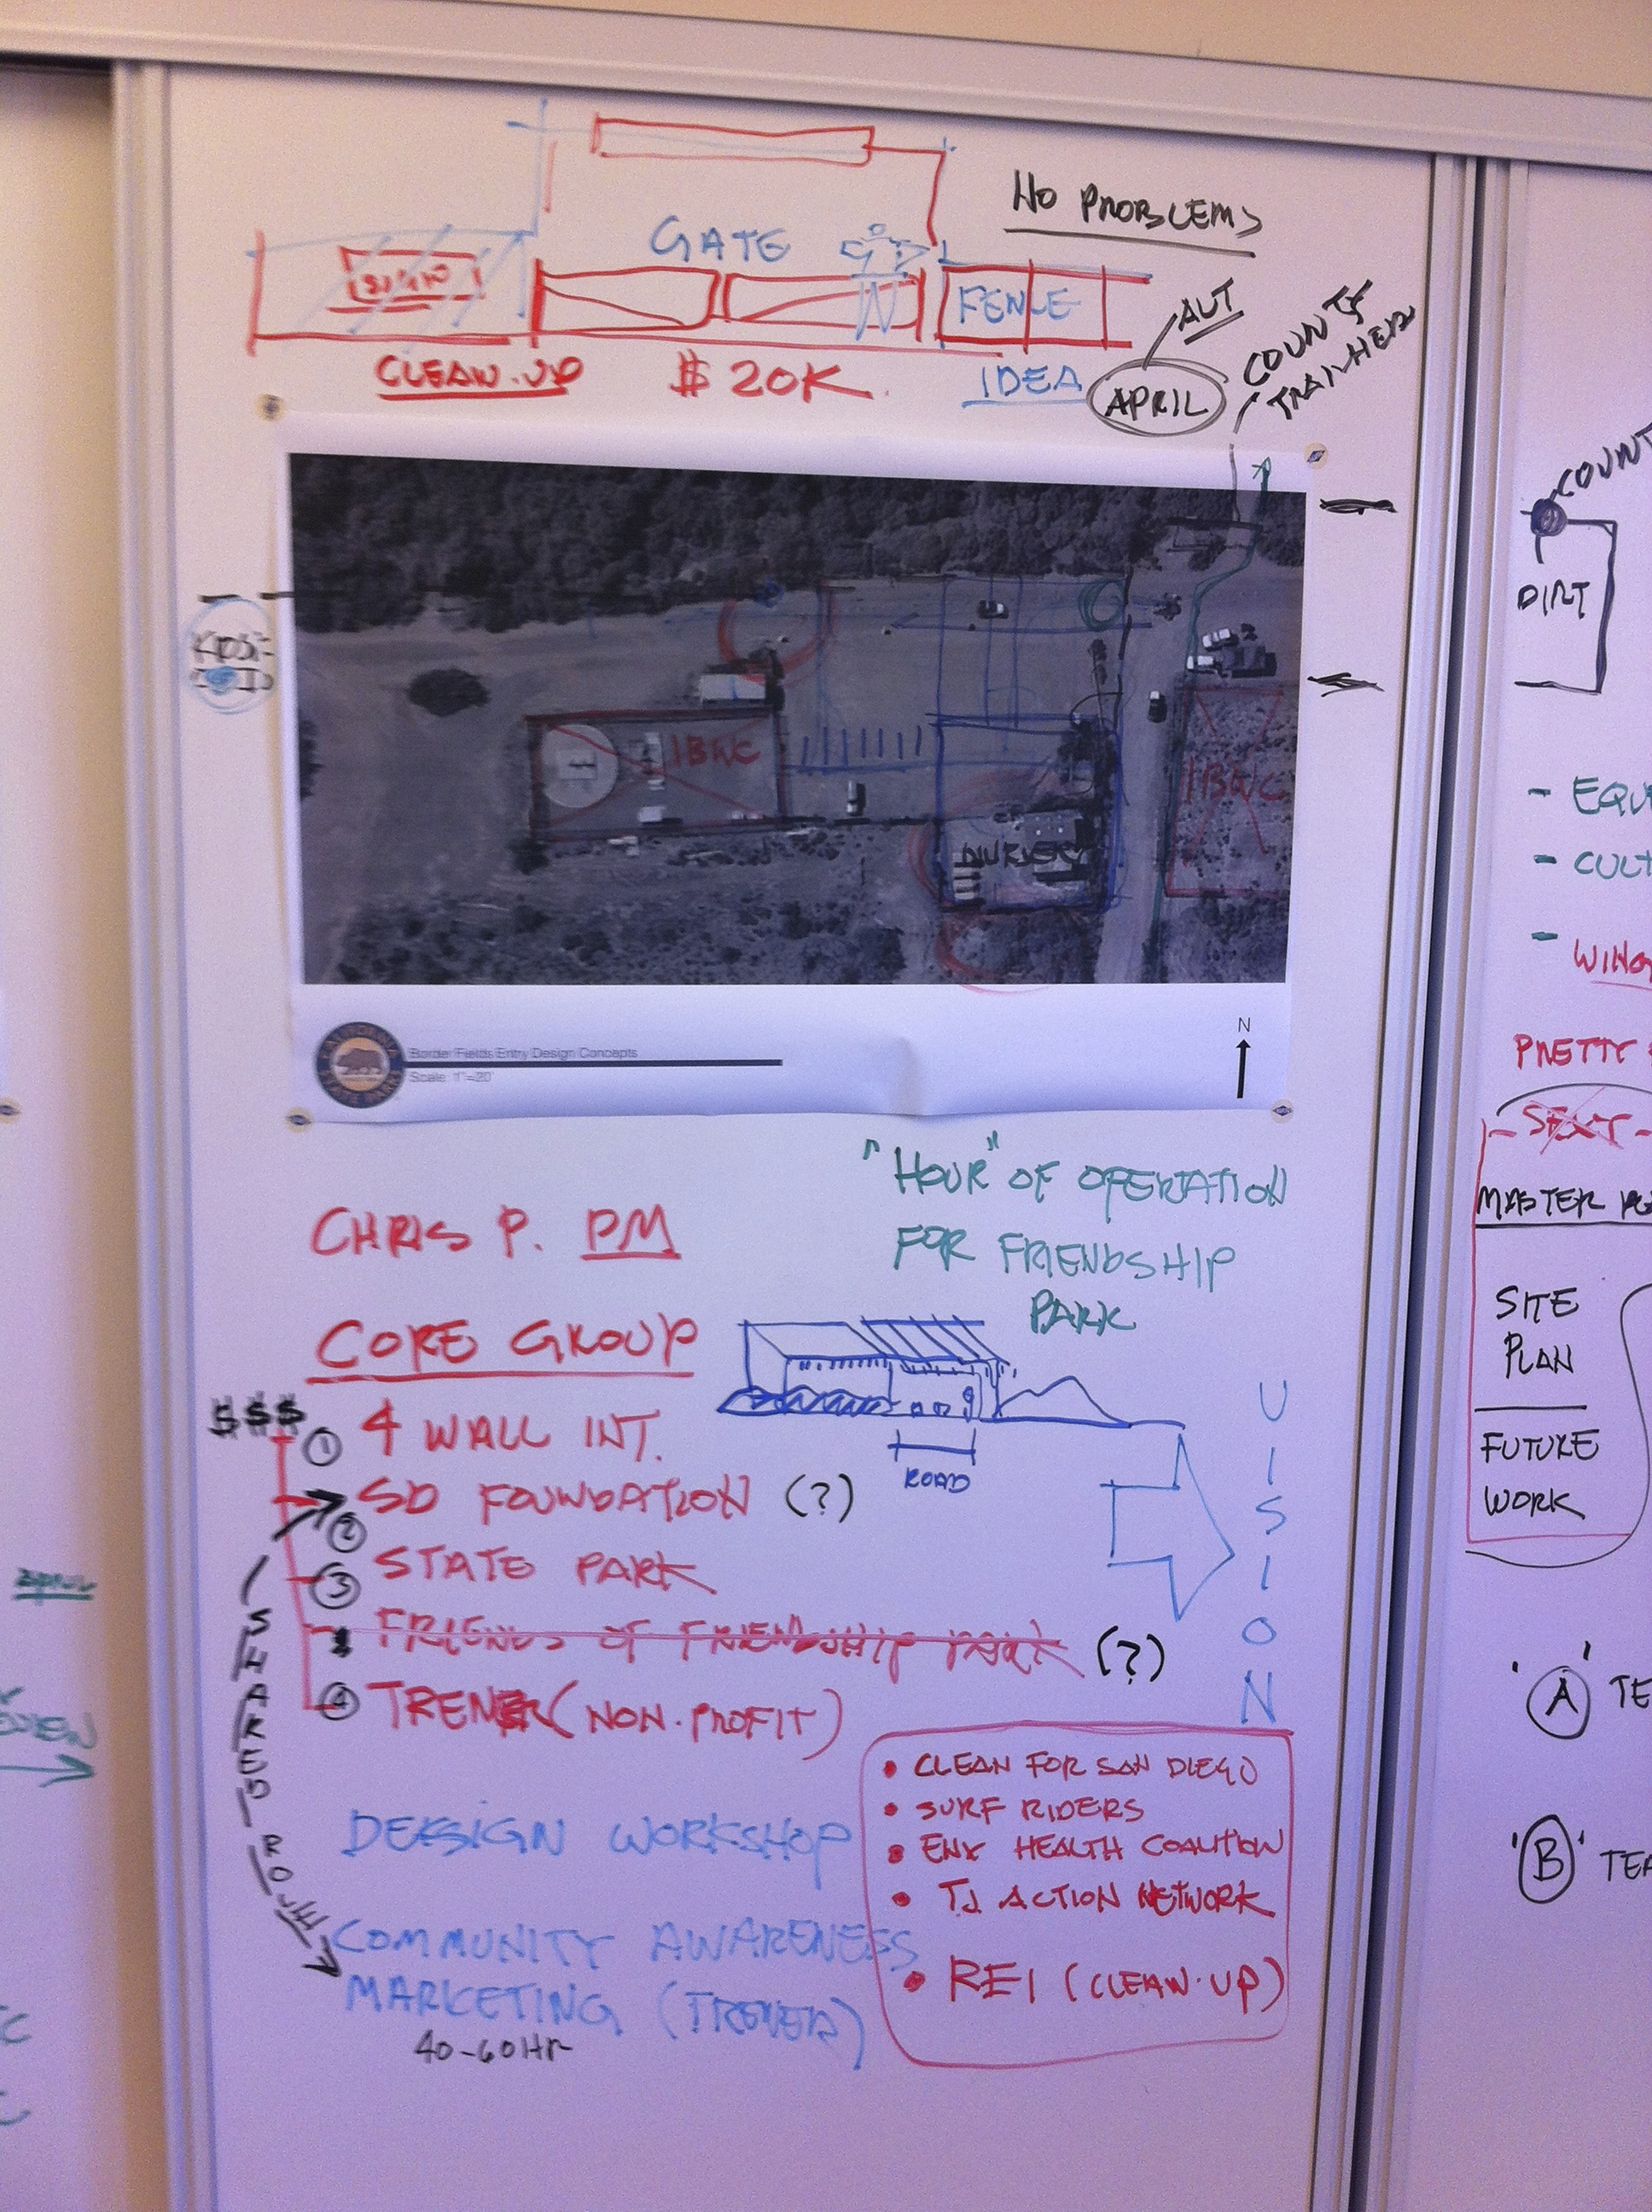 NO PROBLEMS
GATE
SIGN
FENCE
AUT
COUNTY
TRAILHEAD
CLEAN.UP
$ 20K.
IDEA
APRIL
COUNT
DIRT
KIOSK
IBWC
IBWC
NURSERY
N
CALIFORNIA
STATE PARKS
Border Fields Entry Design Concepts
Scale: 1"=20'
- EQU
- CULT
- WIND
PRETTY
MASTER
SITE
PLAN
FUTURE
WORK
'A' TE
'B' TEA
"HOUR" OF OPERATION
FOR FRIENDSHIP
PARK
CHRIS P. PM
CORE GROUP
$$$
① 4 WALL INT.
② SD FOUNDATION (?)
③ STATE PARK
FRIENDS OF FRIENDSHIP PARK (?)
④ TRENER (NON.PROFIT)
ROAD
VISION
SHARED ROLE
• CLEAN FOR SAN DIEGO
• SURF RIDERS
• ENV HEALTH COALITION
• TJ ACTION NETWORK
• REI (CLEAN.UP)
DESIGN WORKSHOP
COMMUNITY AWARENESS
MARKETING (TRENER)
40-60HR
APRIL